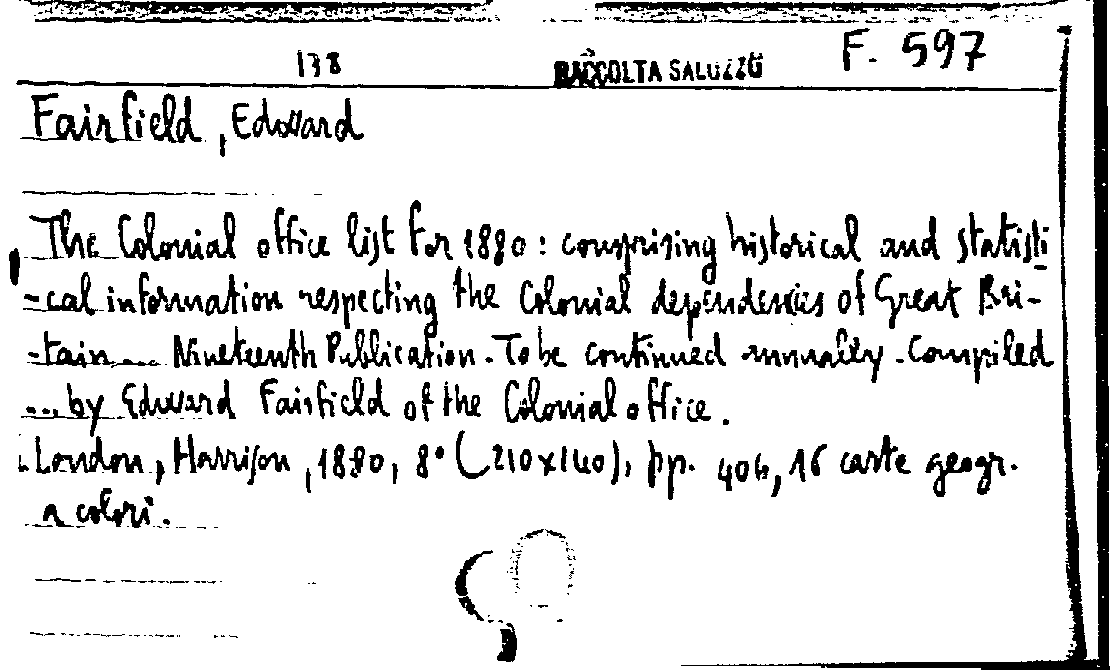 138 RACCOLTA SALUZZO F. 597
Fairfield, Edward
The Colonial office list for 1880: comprising historical and statisti
-cal information respecting the Colonial dependencies of Great Bri-
-tain ... Nineteenth Publication. To be continued annually. Compiled
... by Edward Fairfield of the Colonial office.
London, Harrison, 1880, 8° (210x140), pp. 406, 16 carte geogr.
a colori.